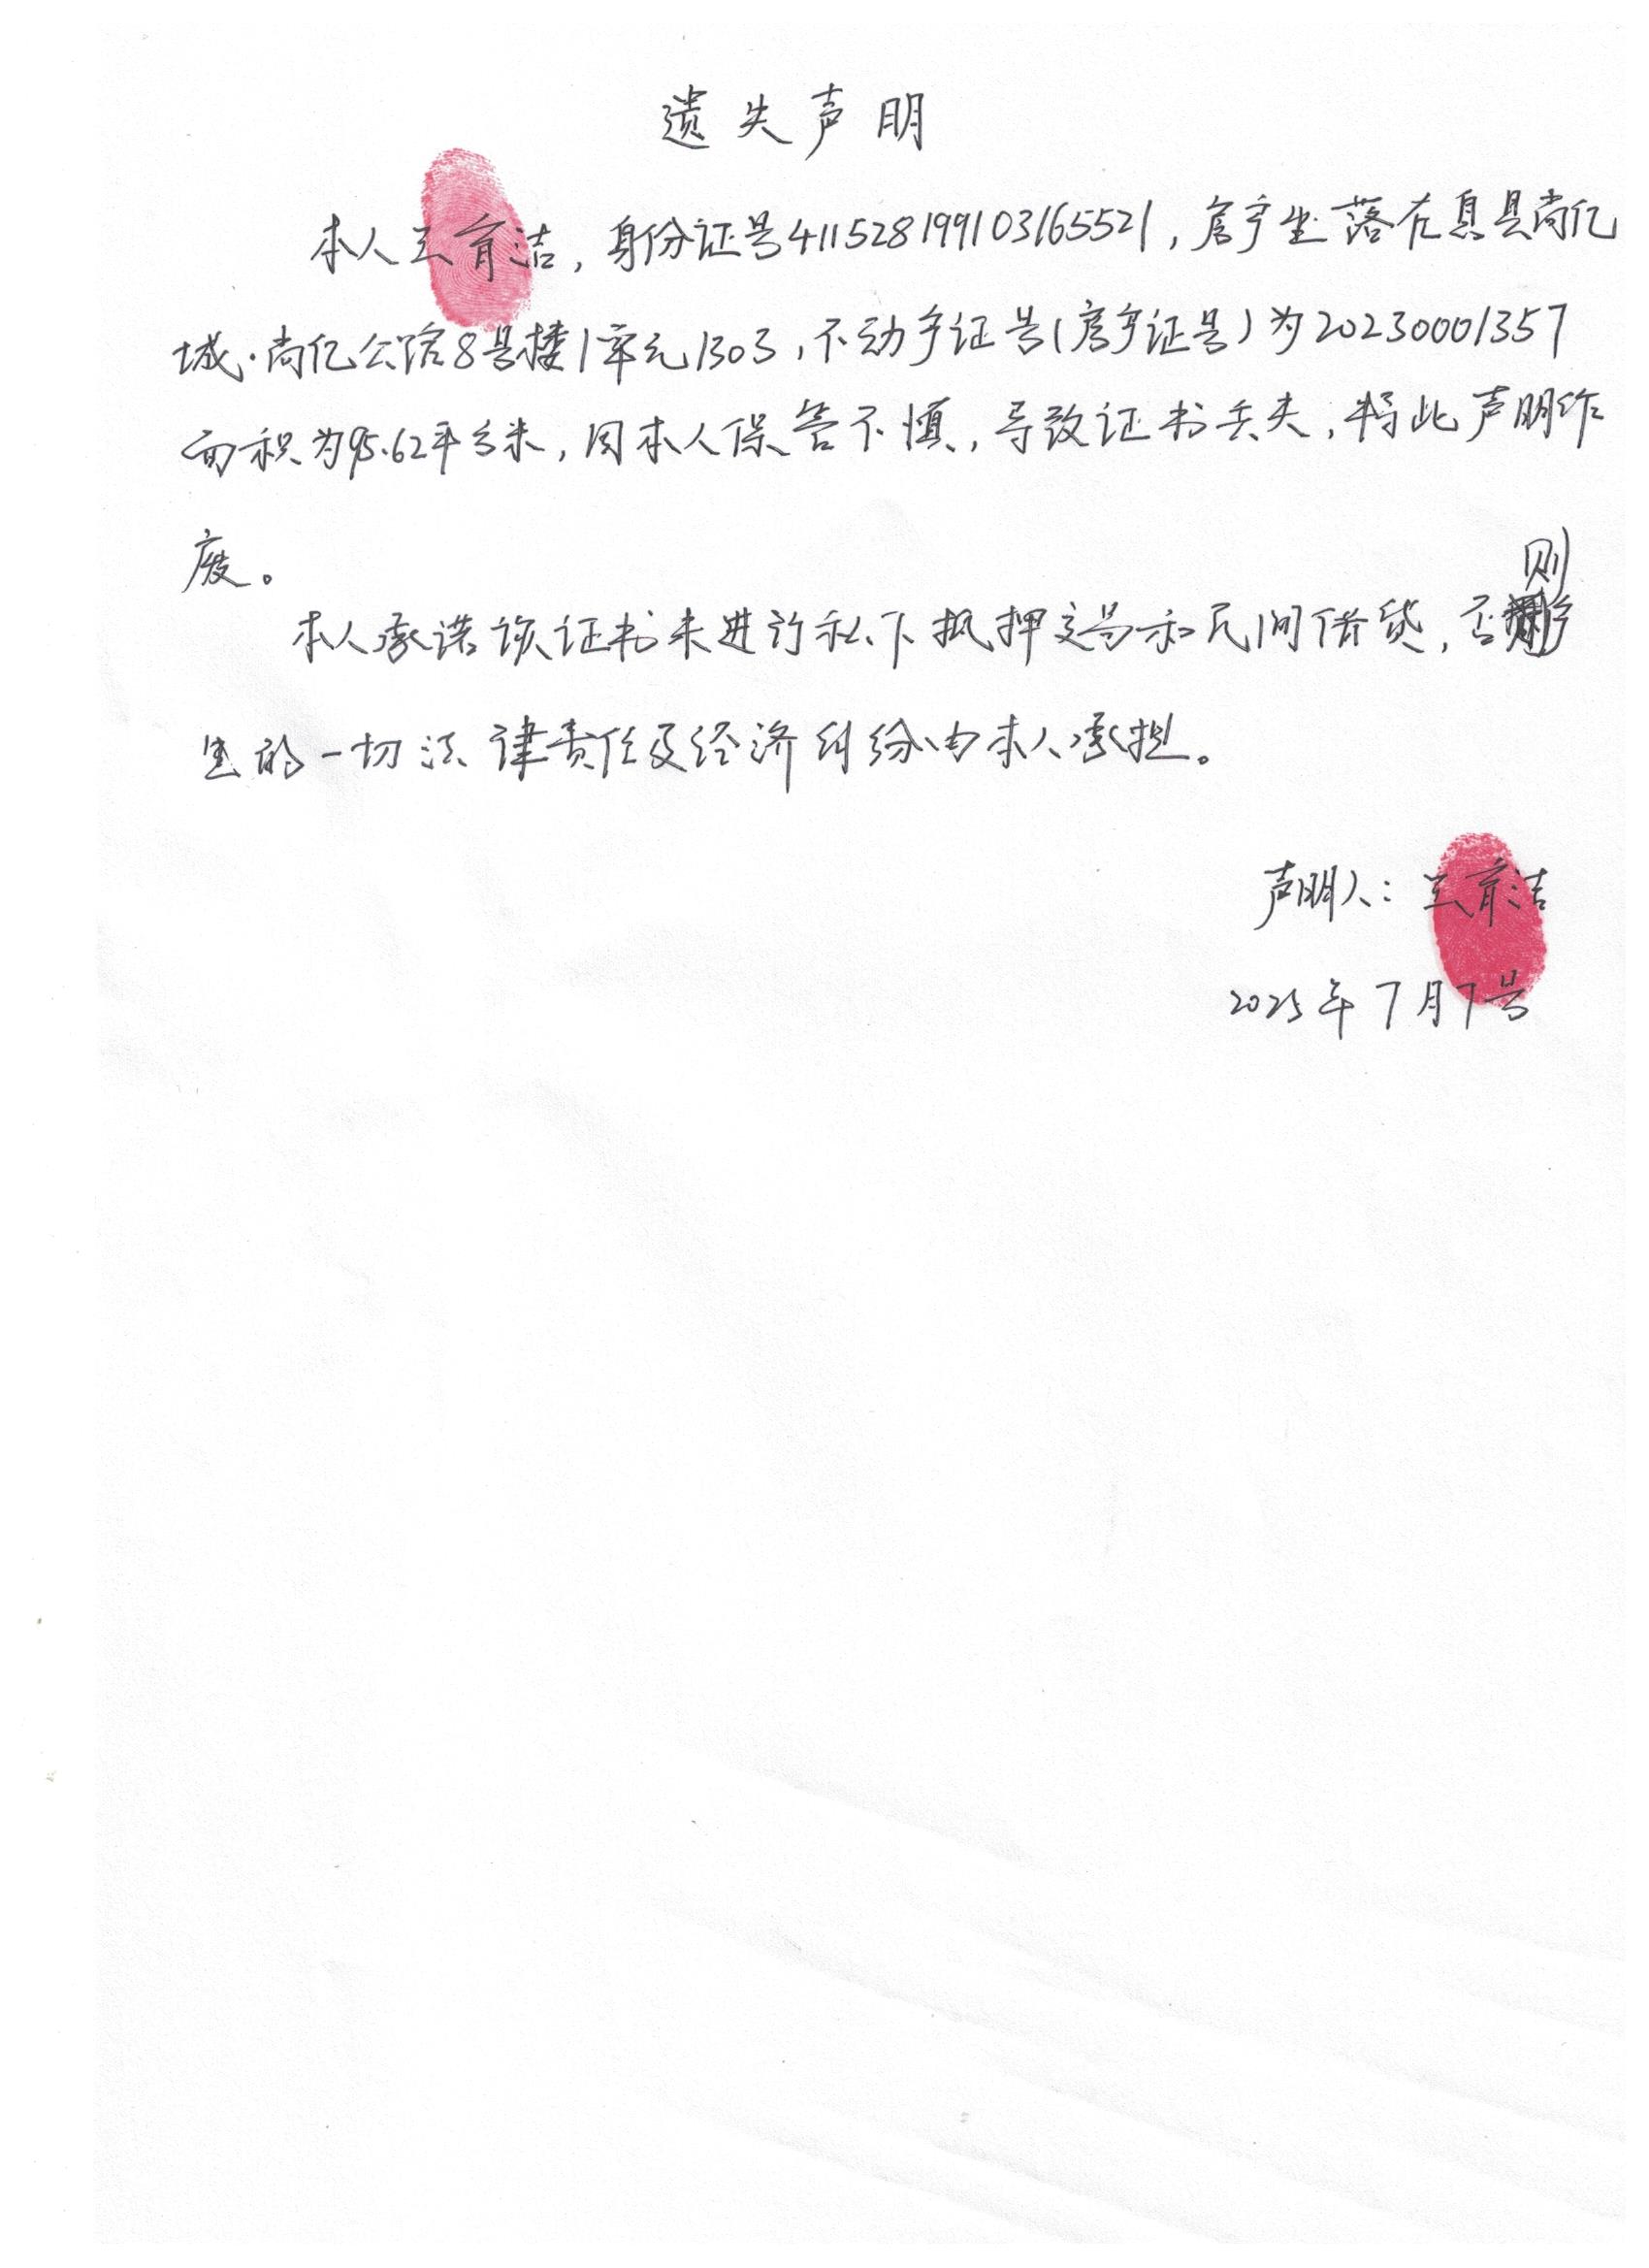 遗失声明
本人王育洁，身份证号411528199103165521，房产坐落在息县尚亿
城·尚亿公路8号楼1单元1303，不动产证号(房产证号)为20230001357
面积为95.62平方米，因本人保管不慎，导致证书丢失，特此声明作
废。
则
本人承诺该证书未进行私下抵押交易和民间借贷，否
生的一切法律责任及经济纠纷由本人承担。
声明人：王育洁
2025年7月7号